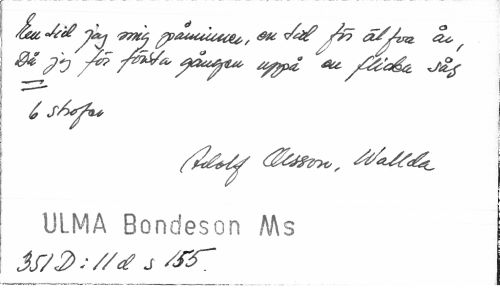 En tid jag mig påminner, en tid för elfva år,
Då jag för första gången uppå en flicka såg
6 strofer
Adolf Olsson, Wallda
ULMA Bondeson Ms
351 D:11 d s 155.